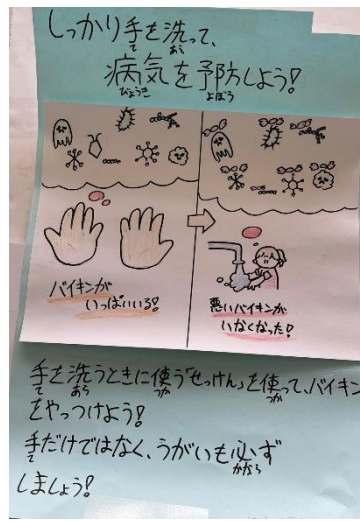 しっかり手を洗って、
て
あら
病気を予防しよう!
びょうき
よぼう
バイキンが
いっぱいいる!
悪いバイキンが
いなくなった!
手を洗うときに使う「せっけん」を使って、バイキン
て
あら
つか
つか
をやっつけよう!
手だけではなく、うがいも必ず
て
かなら
しましょう!